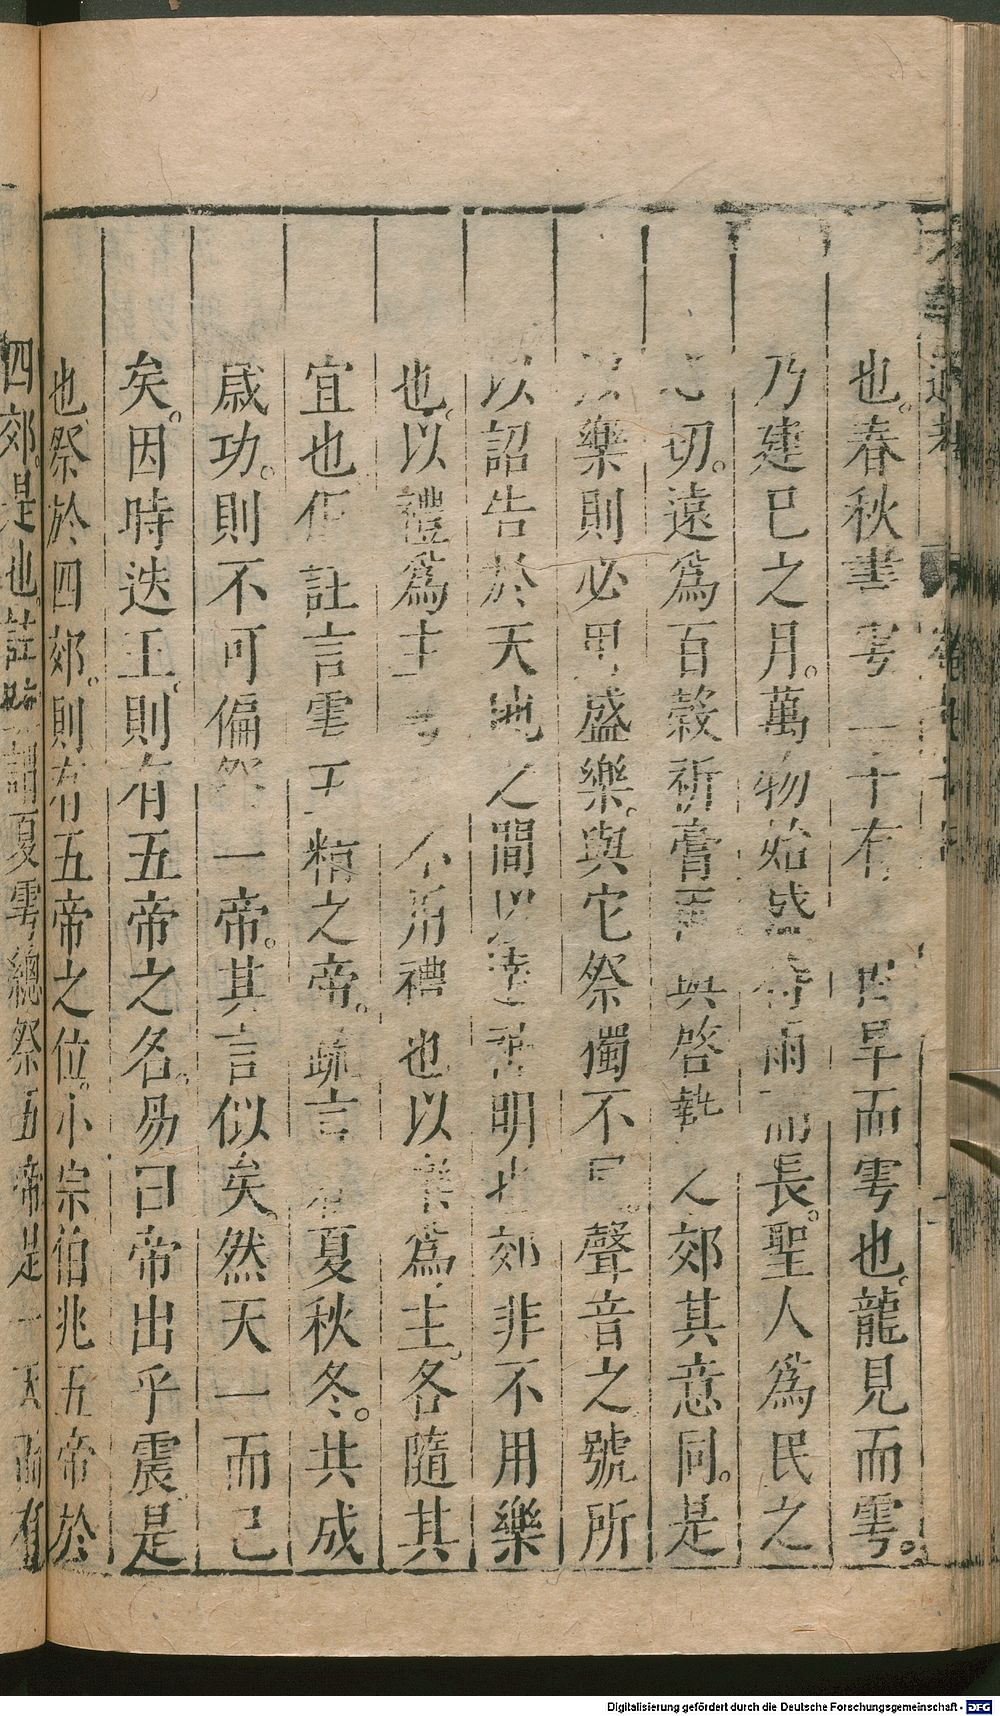 也。春秋書雩二十有 皆旱而雩也。龍見而雩。
乃建巳之月。萬物始盛待雨而長。聖人為民之
心切。遠為百穀祈膏雨與啓蟄之郊其意同。是
以樂則必用盛樂。與它祭獨不同。聲音之號所
以詔告於天地之間以達神明也郊非不用樂
也。以禮為主雩 不用禮也以樂為主。各隨其
宜也但註言雩五精之帝。疏言 夏秋冬。共成
歲功。則不可偏祭一帝。其言似矣。然天一而已
矣。因時迭王。則有五帝之名。易曰帝出乎震。是
也祭於四郊。則有五帝之位。小宗伯兆五帝於
四郊。是也。註 謂夏雩總祭五帝是一天而有
Digitalisierung gefördert durch die Deutsche Forschungsgemeinschaft - DFG